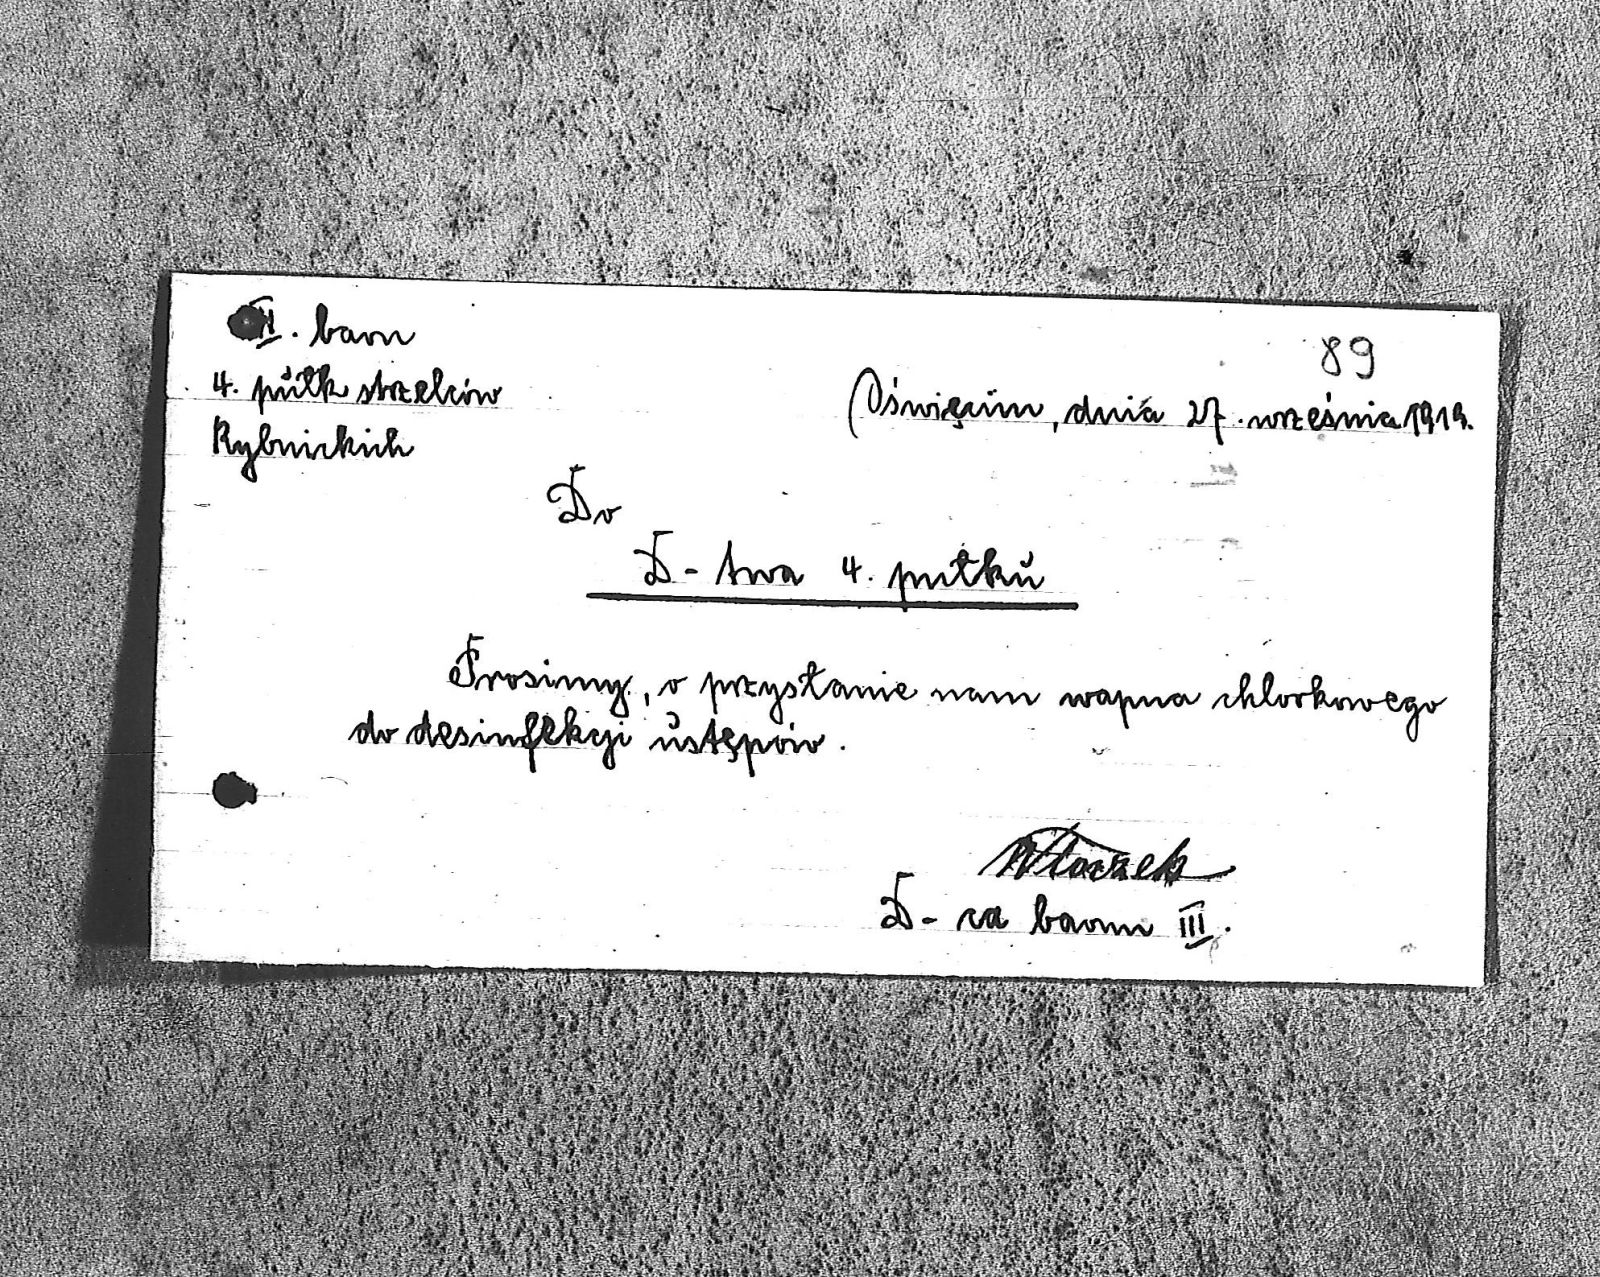 II. baon
4. pułk strzelców
Rybnickich
89
Oświęcim, dnia 27. września 1919.
Do
D-twa 4. pułku
Prosimy, o przysłanie nam wapna chlorkowego
do desinfekcji ustępów.
D-ca baonu III.